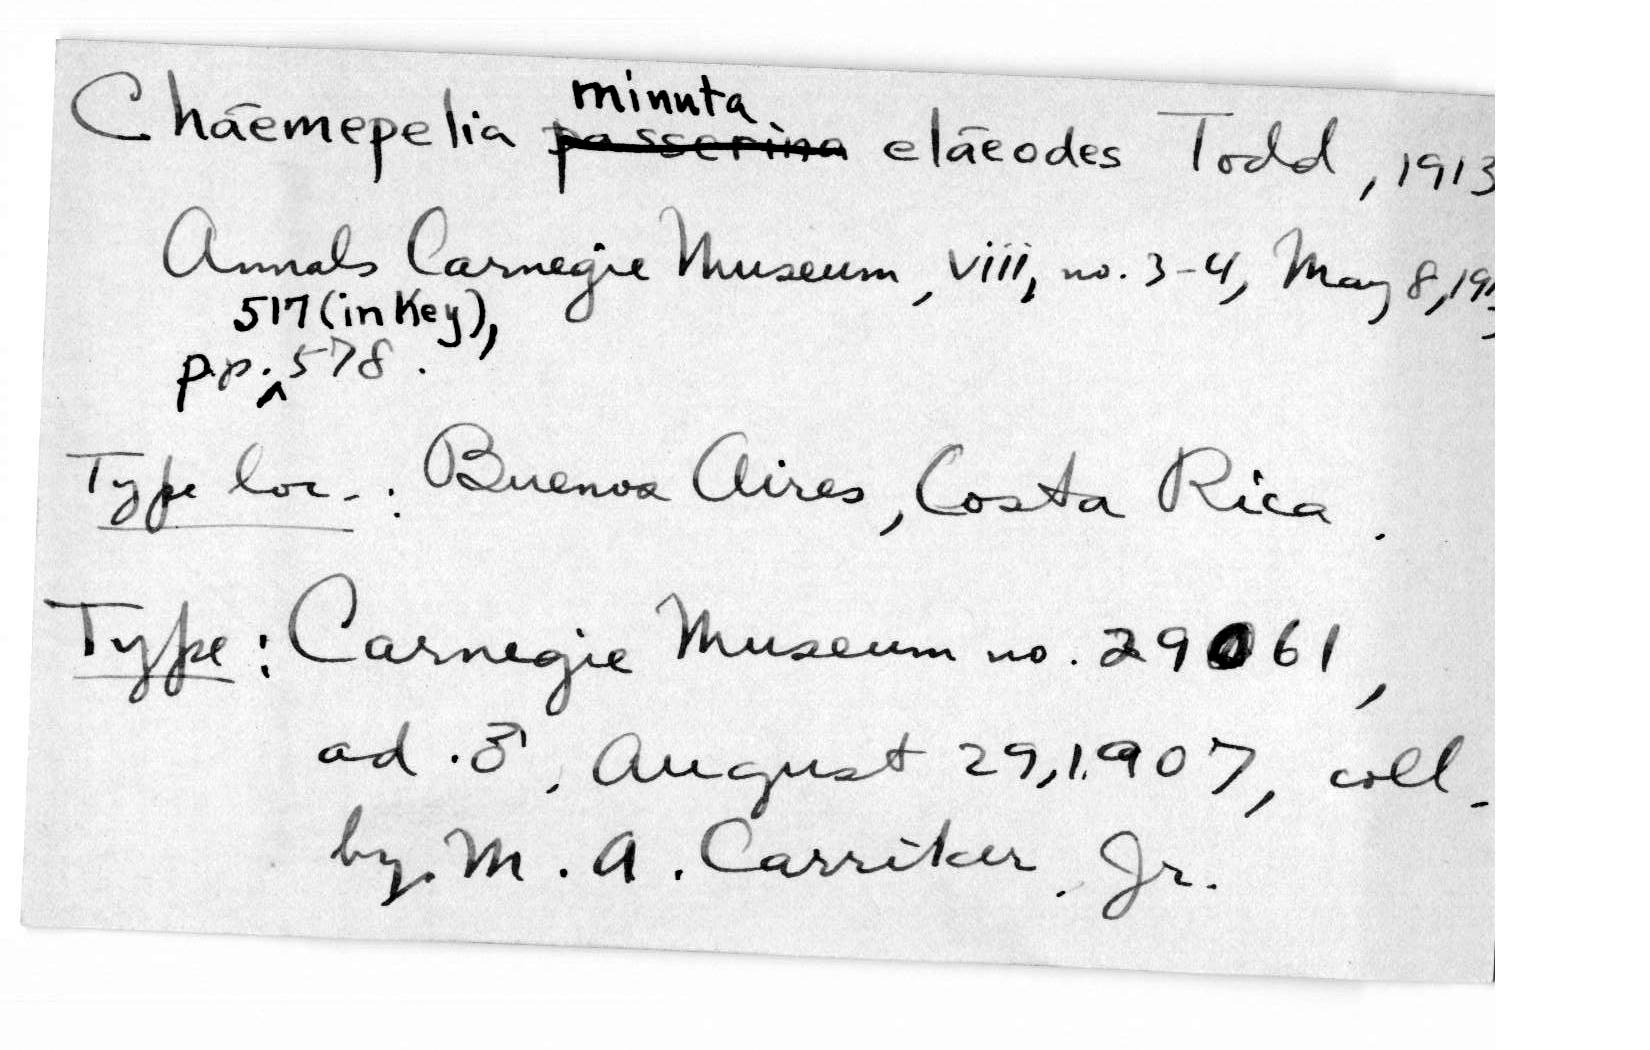 Chaemepelia minuta passerina elaeodes Todd, 1913
Annals Carnegie Museum, viii, no. 3-4, May 8, 191
517 (in Key),
pp. 578.
Type loc.: Buenos Aires, Costa Rica.
Type: Carnegie Museum no. 29061,
ad. ♂, August 29, 1907, coll.
by M. A. Carriker, Jr.